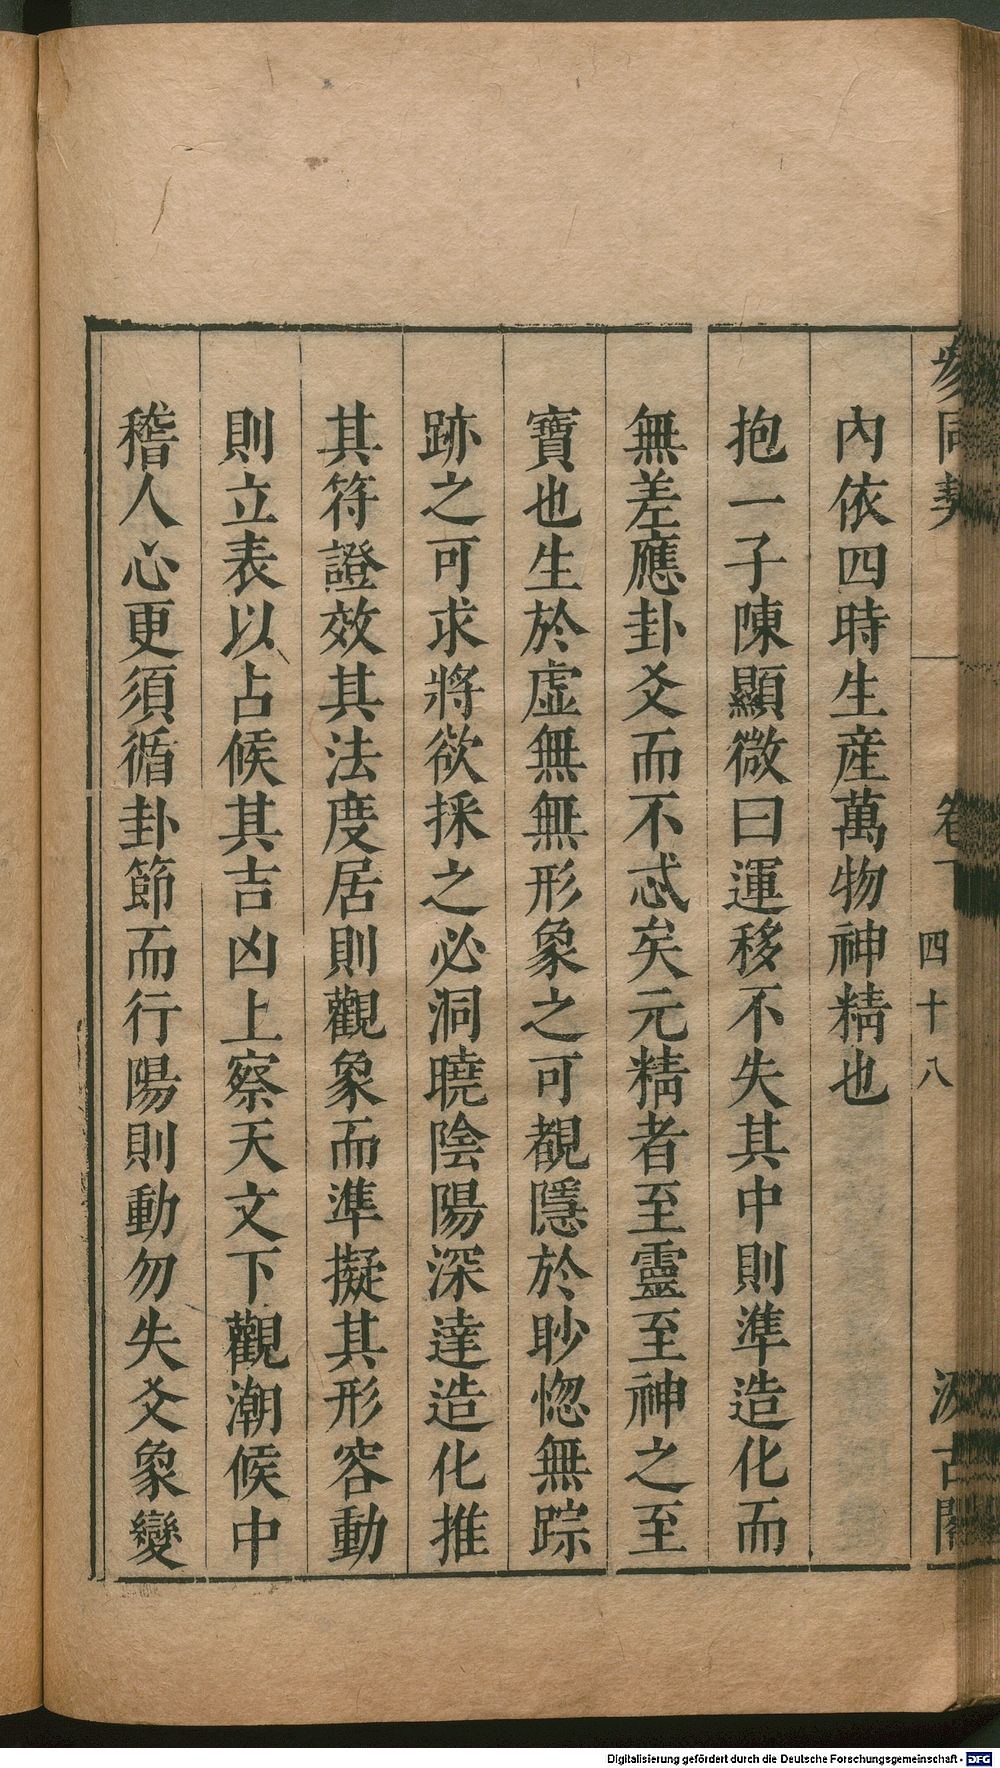 參同契 卷下 四十八 汲古閣
內依四時生產萬物神精也
抱一子陳顯微曰運移不失其中則準造化而
無差應卦爻而不忒矣元精者至靈至神之至
寶也生於虛無無形象之可覩隱於眇惚無踪
跡之可求將欲採之必洞曉陰陽深達造化推
其符證效其法度居則觀象而準擬其形容動
則立表以占候其吉凶上察天文下觀潮候中
稽人心更須循卦節而行陽則動勿失爻象變
Digitalisierung gefördert durch die Deutsche Forschungsgemeinschaft - DFG